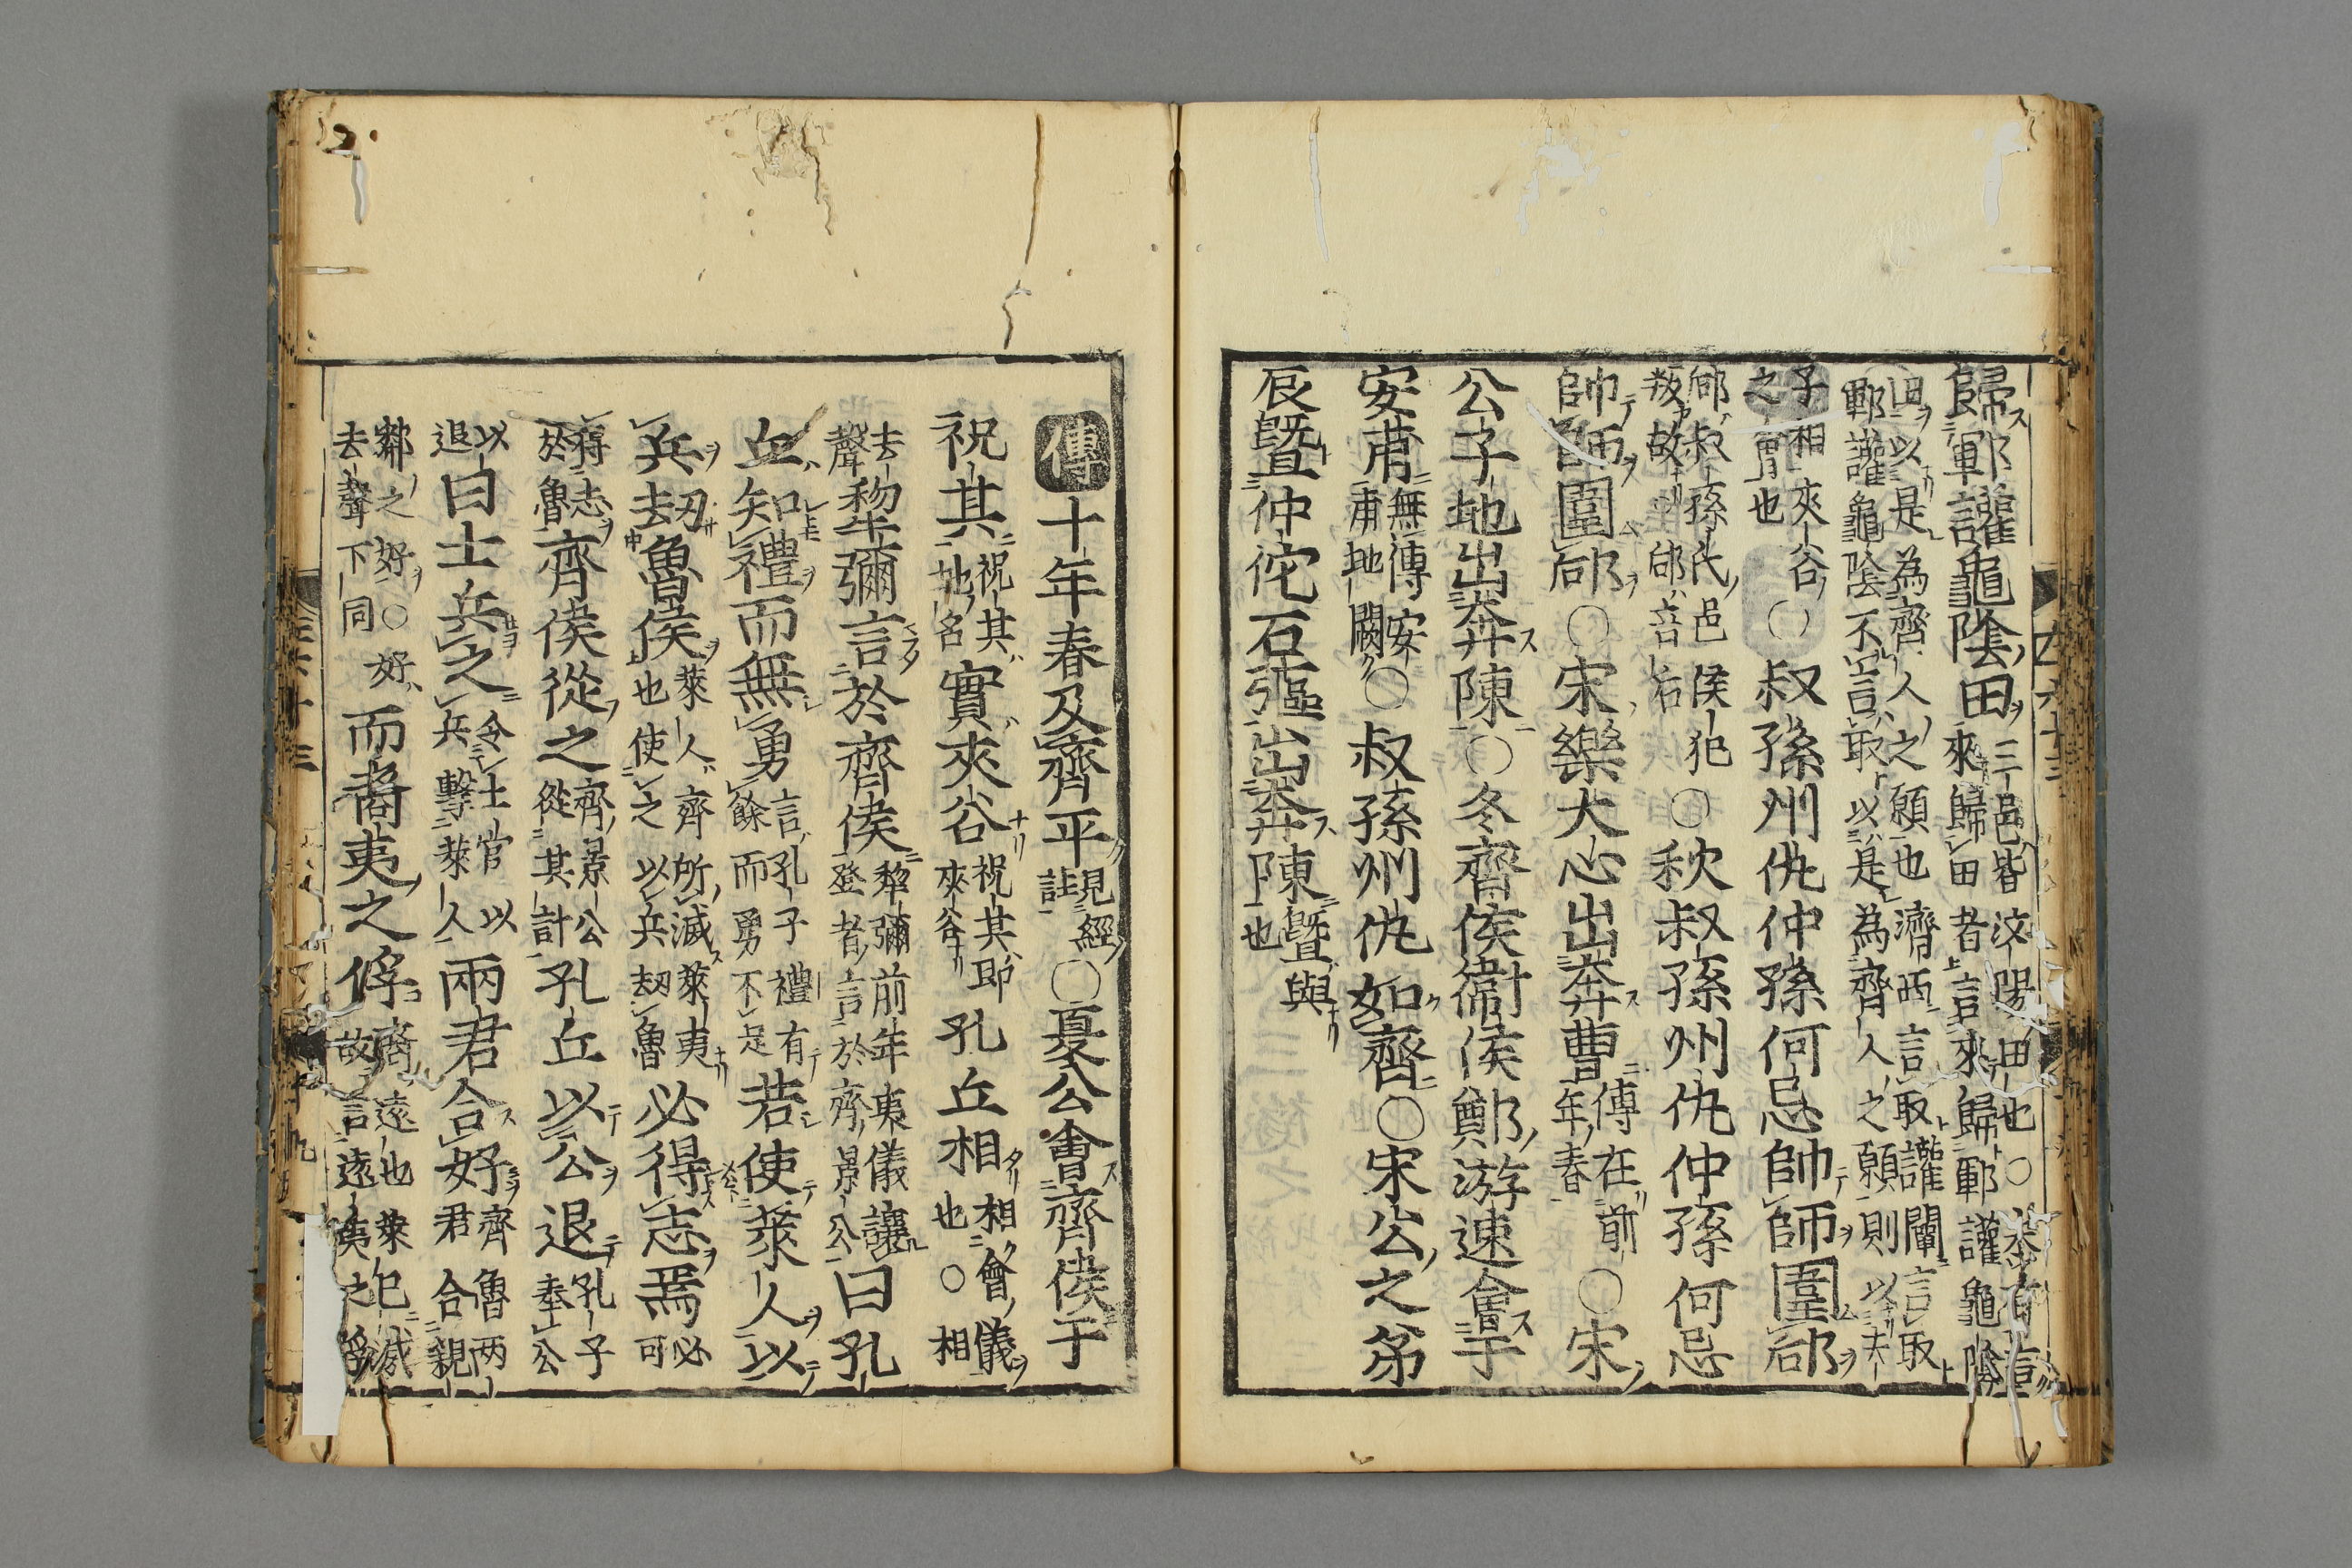 歸鄆讙龜陰田三邑皆汶陽田也○
來歸田者言來歸鄆讙龜陰
田以是為齊人之願也濟西言取讙闡言取
鄆讙龜陰不言取以是為齊人之願則以夫
子相夾谷
之會也○叔孫州仇仲孫何忌帥師圍郈
郈叔孫氏邑侯犯
叛故圍郈音后○秋叔孫州仇仲孫何忌
帥師圍郈○宋樂大心出奔曹傳在前
年春○宋
公子地出奔陳○冬齊侯衞侯鄭游速會于
安甫無傳安
甫地闕○叔孫州仇如齊○宋公之弟
辰暨仲佗石彄出奔陳暨與
也
傳十年春及齊平見經
註○夏公會齊侯于
祝其祝其
地名實夾谷祝其即
夾谷孔丘相相會儀
也○相
去
聲犂彌言於齊侯犂彌前年夷儀讓
登者言於齊景公曰孔
丘知禮而無勇言孔子禮有
餘而勇不足若使萊人以
兵劫魯侯萊人齊所滅萊夷
也使之以兵劫魯必得志焉必
可
得志
於魯齊侯從之齊景公
從其計孔丘以公退孔子
奉公
以
退曰士兵之令士官以
兵擊萊人兩君合好齊魯兩
君合親
鄰之好○好
去聲下同而裔夷之俘裔遠也萊已滅
故言遠夷之俘